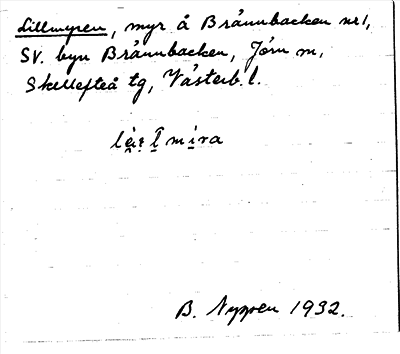 Lillmyren, myr å Brännbacken nr 1,
SV. byn Brännbacken, Jörn sn,
Skellefteå tg, Västerb. l.
B. Nygren 1932.